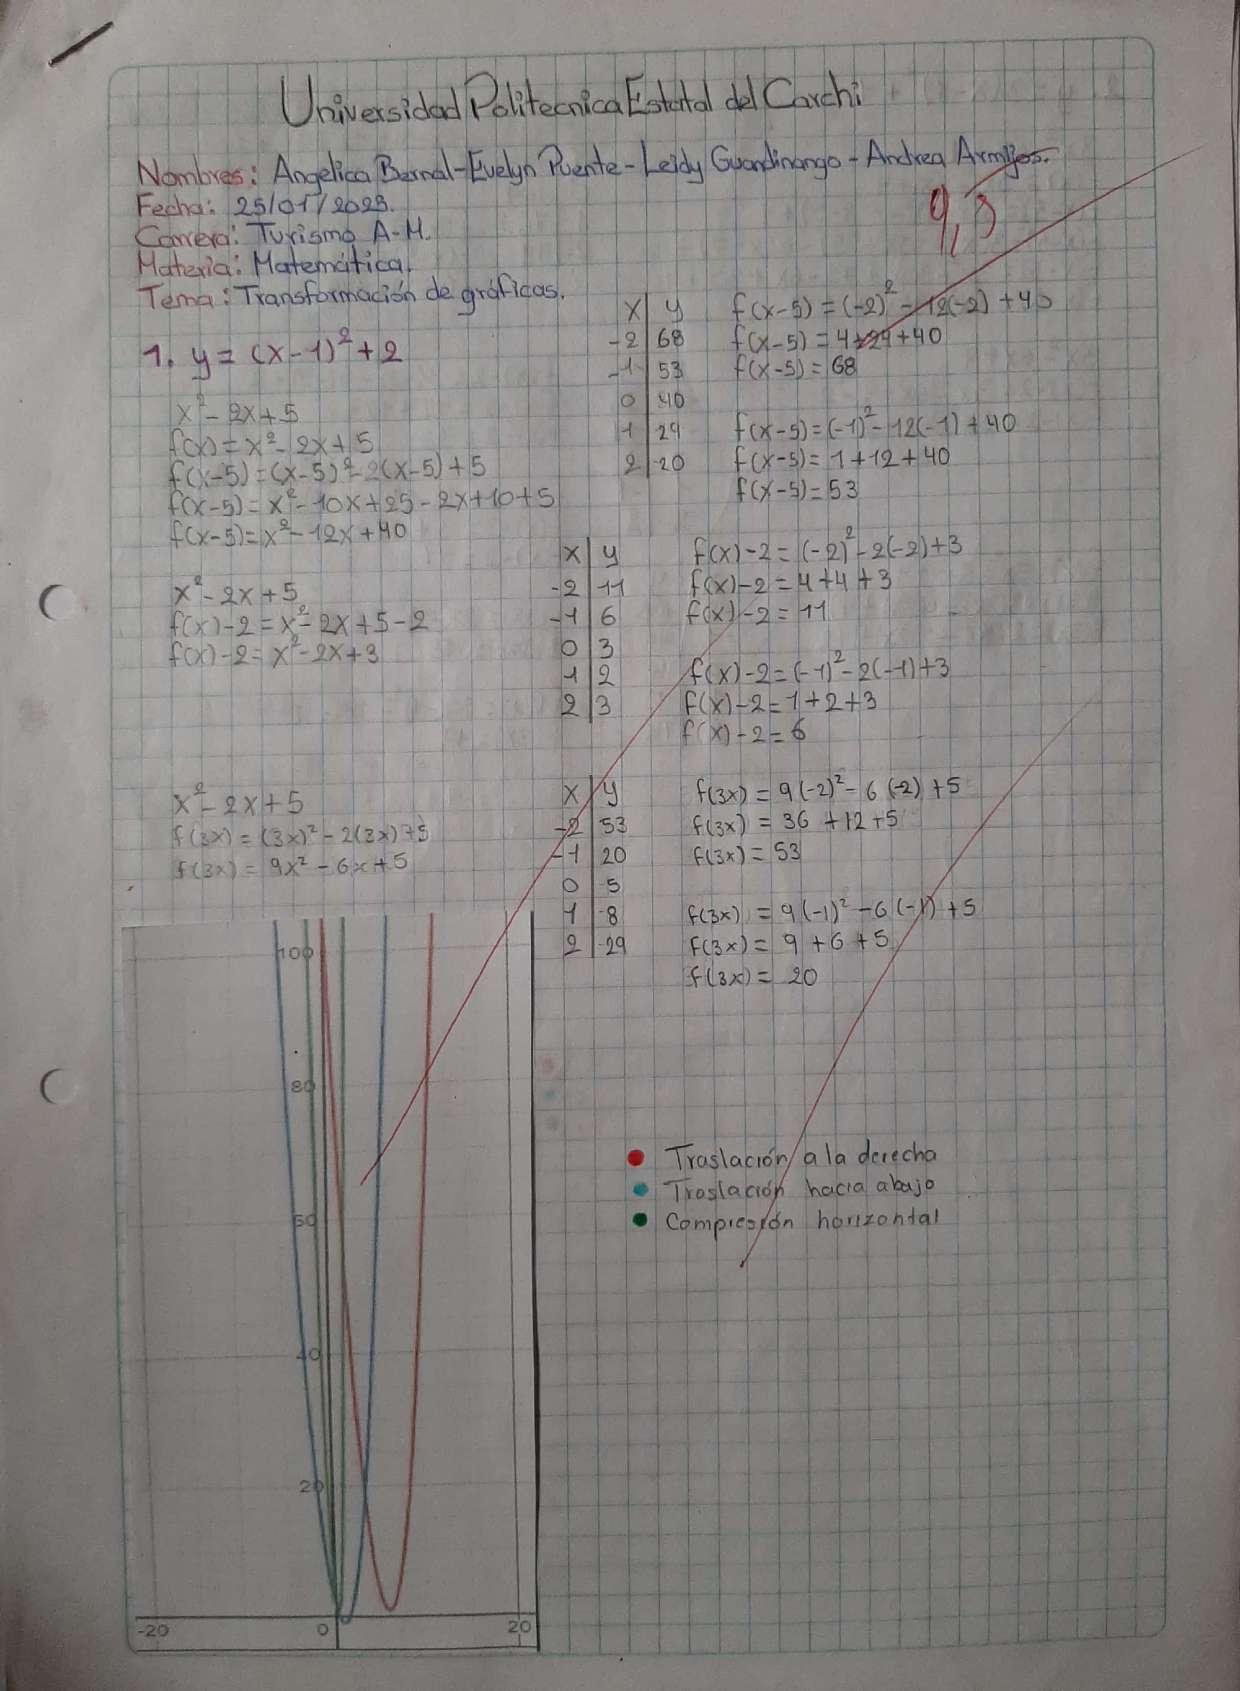 Universidad Politecnica Estatal del Carchi
Nombres: Angelica Bernal-Evelyn Puente-Leidy Guandinango-Andrea Armijos.
9,5
Fecha: 25/01/2023.
Carrera: Turismo A-M.
Materia: Matemática.
Tema: Transformación de gráficas.
1. y = (x-1)² + 2
x² - 2x + 5
f(x) = x² - 2x + 5
f(x-5) = (x-5)² - 2(x-5) + 5
f(x-5) = x² - 10x + 25 - 2x + 10 + 5
f(x-5) = x² - 12x + 40
x | y
-2 | 68
-1 | 53
0 | 40
1 | 29
2 | 20
f(x-5) = (-2)² - 12(-2) + 40
f(x-5) = 4 + 24 + 40
f(x-5) = 68
f(x-5) = (-1)² - 12(-1) + 40
f(x-5) = 1 + 12 + 40
f(x-5) = 53
x² - 2x + 5
f(x) - 2 = x² - 2x + 5 - 2
f(x) - 2 = x² - 2x + 3
x | y
-2 | 11
-1 | 6
0 | 3
1 | 2
2 | 3
f(x) - 2 = (-2)² - 2(-2) + 3
f(x) - 2 = 4 + 4 + 3
f(x) - 2 = 11
f(x) - 2 = (-1)² - 2(-1) + 3
f(x) - 2 = 1 + 2 + 3
f(x) - 2 = 6
x² - 2x + 5
f(3x) = (3x)² - 2(3x) + 5
f(3x) = 9x² - 6x + 5
x | y
-2 | 53
-1 | 20
0 | 5
1 | 8
2 | 29
f(3x) = 9(-2)² - 6(-2) + 5
f(3x) = 36 + 12 + 5
f(3x) = 53
f(3x) = 9(-1)² - 6(-1) + 5
f(3x) = 9 + 6 + 5
f(3x) = 20
100
80
60
40
20
-20 0 20
Traslación a la derecha
Traslación hacia abajo
Compresión horizontal